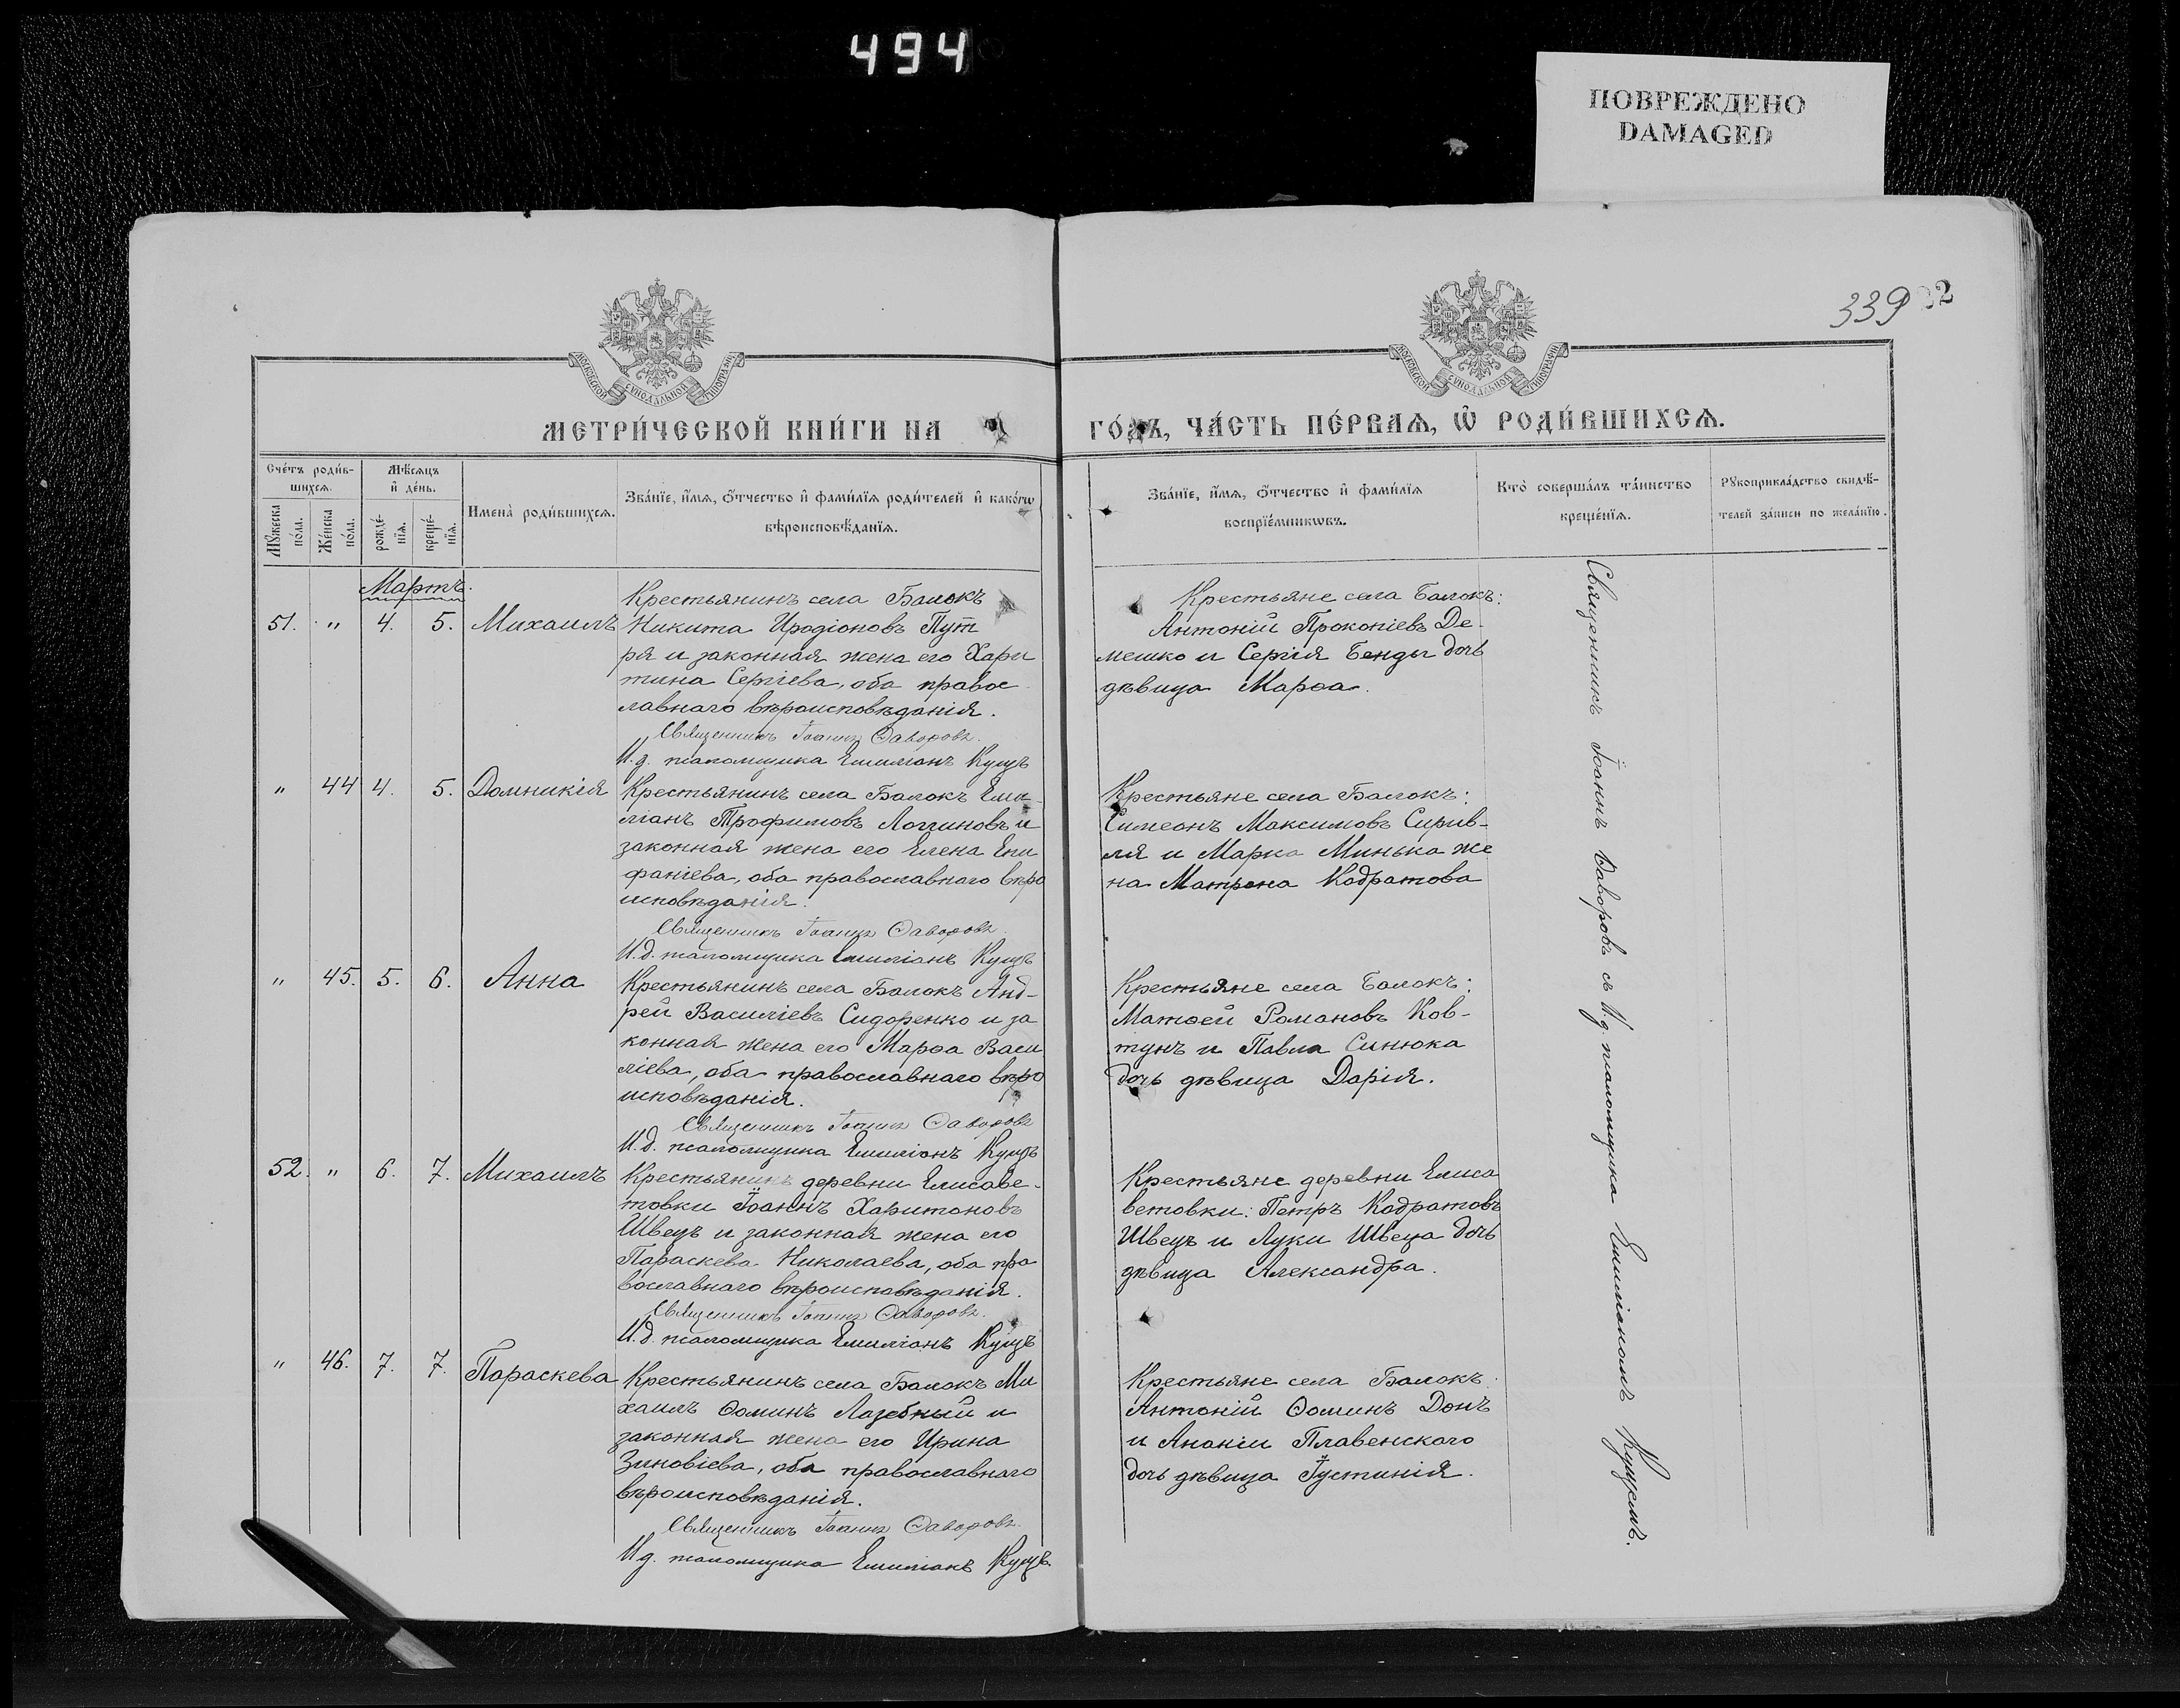 494
ПОВРЕЖДЕНО
DAMAGED
339
22
МОСКОВСКОЙ СѴНОДАЛЬНОЙ ТИПОГРАФІИ
МОСКОВСКОЙ СѴНОДАЛЬНОЙ ТИПОГРАФІИ
МЕТРИ́ЧЕСКОЙ КНИ́ГИ НА
ГО́ДЪ, ЧА́СТЬ ПЕ́РВАѦ, Ѽ РОДИ́ВШИХСѦ.
Сче́тъ роди́в-
шихсѧ.
Мѣ́сѧцъ
и҆ де́нь.
Мꙋ́жеска
по́ла.
Же́нска
по́ла.
рожде́-
нїѧ.
креще́-
нїѧ.
Имена̀ роди́вшихсѧ.
Зва́нїе, и҆́мѧ, ѻ҆́тчество и҆ фами́лїѧ роди́телей и҆ како́гѡ
вѣроисповѣ́данїѧ.
Зва́нїе, и҆́мѧ, ѻ҆́тчество и҆ фами́лїѧ
воспрїе́мникѡвъ.
Кто̀ соверша́лъ та́инство
креще́нїѧ.
Рꙋкоприкла́дство свидѣ́-
телей за́писи по жела́нїю.
Мартъ.
51. " 4. 5. Михаилъ
Крестьянинъ села Балокъ
Никита Иродіоновъ Пут
ря и законная жена его Хари
тина Сергіева, оба правос
лавнаго вѣроисповѣданія.
Священникъ Іоаннъ Ѳаворовъ.
И.д. псаломщика Емиліанъ Кущъ
Крестьяне села Балокъ:
Антоній Прокопіевъ Де-
мешко и Сергія Бенды дочь
дѣвица Марѳа.
" 44 4. 5. Домникія
Крестьянинъ села Балокъ Еми-
ліанъ Трофимовъ Логгиновъ и
законная жена его Елена Епи
фаніева, оба православнаго вѣро
исповѣданія.
Священникъ Іоаннъ Ѳаворовъ.
И.д. псаломщика Емиліанъ Кущъ
Крестьяне села Балокъ:
Симеонъ Максимовъ Сирив-
ля и Марка Минька же
на Матрона Кодратова
" 45. 5. 6. Анна
Крестьянинъ села Балокъ Анд-
рей Василіевъ Сидоренко и за
конная жена его Марѳа Васи
ліева, оба православнаго вѣро
исповѣданія.
Священникъ Іоаннъ Ѳаворовъ
И.д. псаломщика Емиліанъ Кущъ
Крестьяне села Балокъ:
Матѳей Романовъ Ков-
тунъ и Павла Синюка
дочь дѣвица Дарія.
52. " 6. 7. Михаилъ
Крестьянинъ деревни Елисаве-
товки Іоаннъ Харитоновъ
Швецъ и законная жена его
Параскева Николаева, оба пра
вославнаго вѣроисповѣданія.
Священникъ Іоаннъ Ѳаворовъ.
И.д. псаломщика Емиліанъ Кущъ
Крестьяне деревни Елиса
ветовки: Петръ Кодратовъ
Швецъ и Луки Швеца дочь
дѣвица Александра.
" 46. 7. 7. Параскева
Крестьянинъ села Балокъ Ми
хаилъ Ѳоминъ Лазебный и
законная жена его Ирина
Зиновіева, оба православнаго
вѣроисповѣданія.
Священникъ Іоаннъ Ѳаворовъ.
И.д. псаломщика Емиліанъ Кущъ.
Крестьяне села Балокъ:
Антоній Ѳоминъ Донъ
и Ананіи Плавенскаго
дочь дѣвица Іустинія.
Священникъ Іоаннъ Ѳаворовъ съ И.д псаломщика Емиліаномъ Кущемъ.